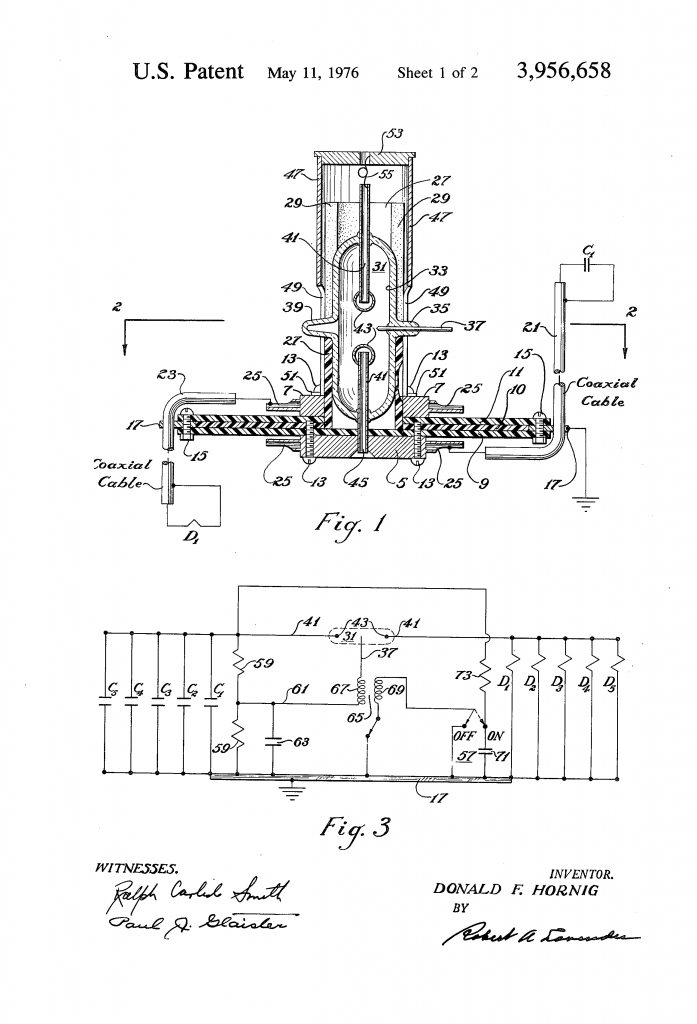 U.S. Patent May 11, 1976 Sheet 1 of 2 3,956,658
53
47 55
27
29 29
47
41 31
33
C1
49 49
39 35
2 43 37 21 2
27
13 13
15
51 41 51
23 7 7 11
25 25 10
Coaxial
Cable
17
15
Coaxial
Cable
25 13 45 5 13 25 9 17
D1
Fig. 1
41 43 41
31
59 37
73
C5 C4 C3 C2 C1 D1 D2 D3 D4 D5
61 67 69
65
OFF ON
59 63 57 71
17
Fig. 3
WITNESSES.
Ralph Carlisle Smith
Paul J. Glaister
INVENTOR.
DONALD F. HORNIG
BY
Robert A. Lavender